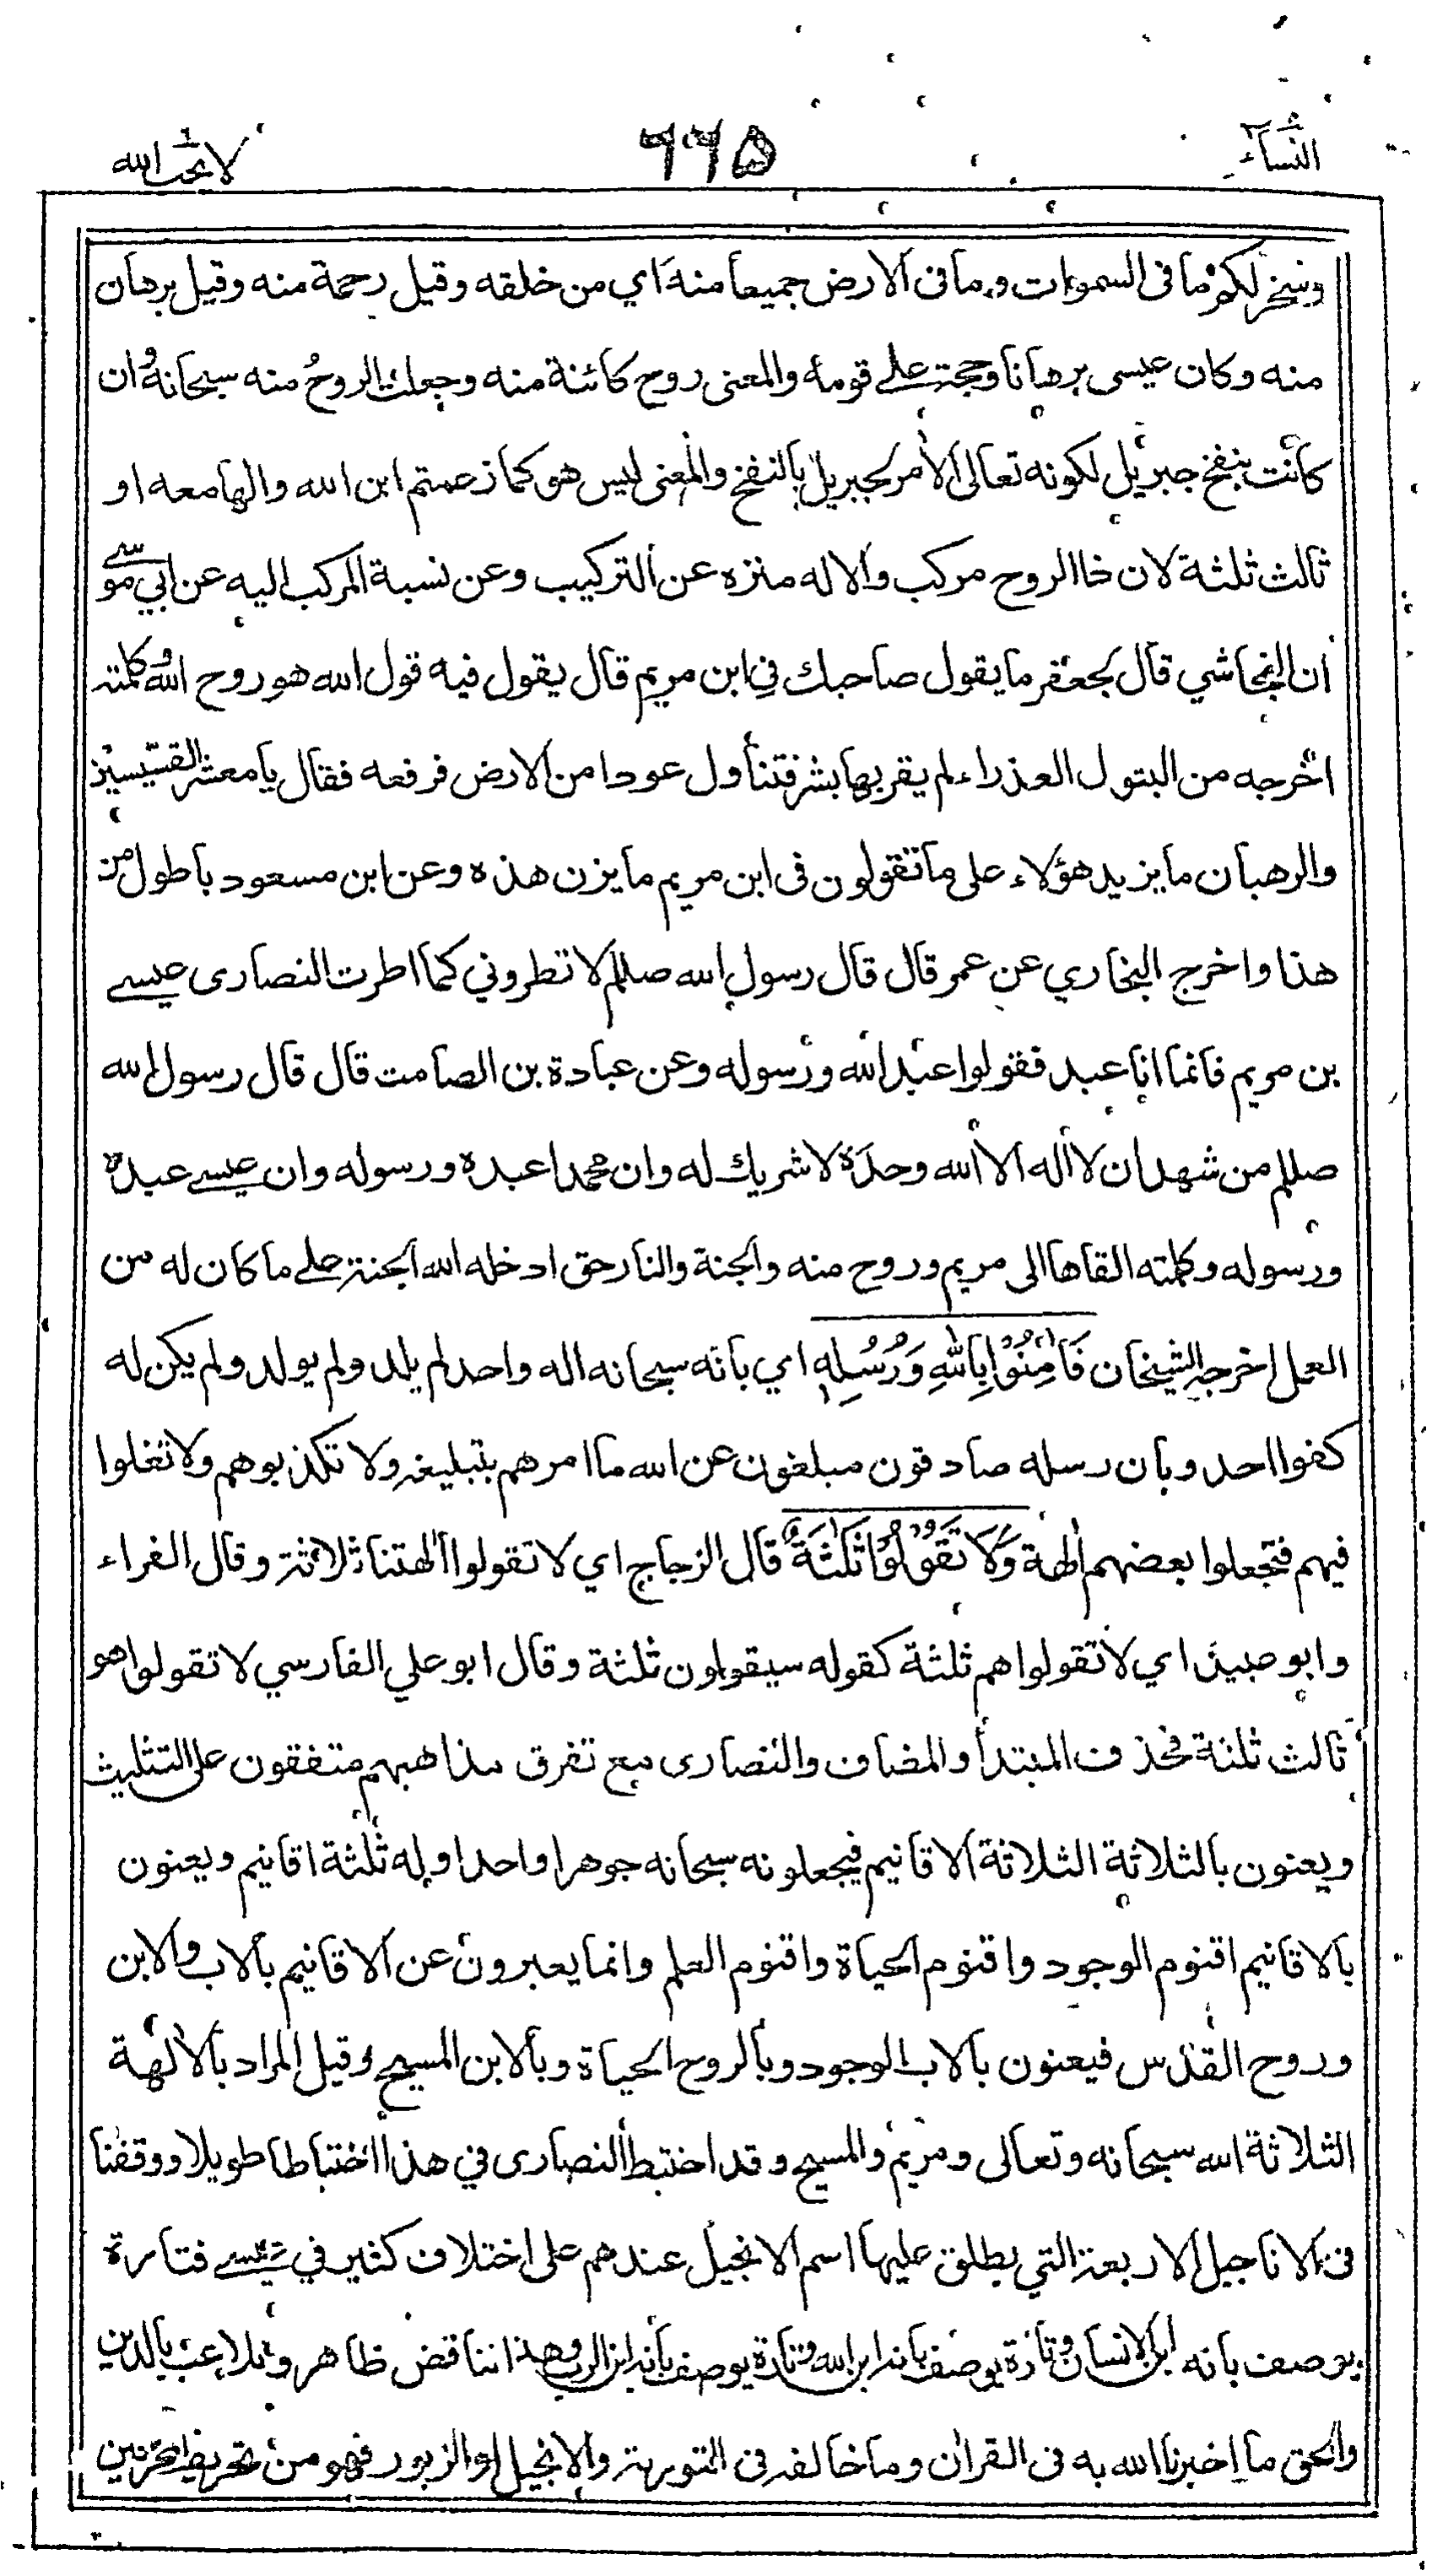 النساء ٦٦٥ لا يحب الله
وسخر لكم ما فى السموات وما فى الارض جميعا منه اي من خلقه وقيل رحمة منه وقيل برهان
منه وكان عيسى برهانا وحجة على قومه والمعنى روح كائنة منه وجعلت الروح منه سبحانه وان
كانت بنفخ جبريل لكونه تعالى الأمر لجبريل بالنفخ والمعنى ليس هو كما زعمتم ابن الله والها معه او
ثالث ثلثة لان ذا الروح مركب والاله منزه عن التركيب وعن نسبة المركب اليه عن ابي موسى
ان النجاشي قال لجعفر ما يقول صاحبك في ابن مريم قال يقول فيه قول الله هو روح الله وكلمته
اخرجه من البتول العذراء لم يقربها بشر فتناول عودا من الارض فرفعه فقال يا معشر القسيسين
والرهبان ما يزيد هؤلاء على ما تقولون فى ابن مريم ما يزن هذه وعن ابن مسعود باطول من
هذا واخرج البخاري عن عمر قال قال رسول الله صللم لا تطروني كما اطرت النصارى عيسى
بن مريم فانما انا عبد فقولوا عبد الله ورسوله وعن عبادة بن الصامت قال قال رسول الله
صللم من شهد ان لا اله الا الله وحده لا شريك له وان محمدا عبده ورسوله وان عيسى عبده
ورسوله وكلمته القاها الى مريم وروح منه والجنة والنار حق ادخله الله الجنة على ما كان له من
العمل اخرجه الشيخان فَاٰمِنُوْا بِاللهِ وَرُسُلِهٖ اي بانه سبحانه اله واحد لم يلد ولم يولد ولم يكن له
كفوا احد وبان رسله صادقون مبلغون عن الله ما امرهم بتبليغه ولا تكذبوهم ولا تغلوا
فيهم فتجعلوا بعضهم اٰلهة وَلَا تَقُوْلُوْا ثَلٰثَةٌ قال الزجاج اي لا تقولوا اٰلهتنا ثلاثة وقال الفراء
وابو عبيد اي لا تقولوا هم ثلثة كقوله سيقولون ثلثة وقال ابو علي الفارسي لا تقولوا هو
ثالث ثلثة فحذف المبتدأ والمضاف والنصارى مع تفرق مذاهبهم متفقون على التثليث
ويعنون بالثلاثة الثلاثة الاقانيم فيجعلونه سبحانه جوهرا واحدا وله ثلثة اقانيم ويعنون
بالاقانيم اقنوم الوجود واقنوم الحياة واقنوم العلم وانما يعبرون عن الاقانيم بالاب والابن
وروح القدس فيعنون بالاب الوجود وبالروح الحياة وبالابن المسيح وقيل المراد بالاٰلهة
الثلاثة الله سبحانه وتعالى ومريم والمسيح وقد اختبط النصارى في هذا اختباطا طويلا ووقفنا
فى الاناجيل الاربعة التي يطلق عليها اسم الانجيل عندهم على اختلاف كثير في عيسى فتارة
يوصف بانه ابن الانسان وتارة يوصف بانه ابن الله وتارة يوصف بانه ابن الرب وهذا تناقض ظاهر وتلاعب بالدين
والحق ما اخبرنا الله به فى القران وما خالفه فى التورىة والانجيل او الزبور فهو من تحريف المحرفين